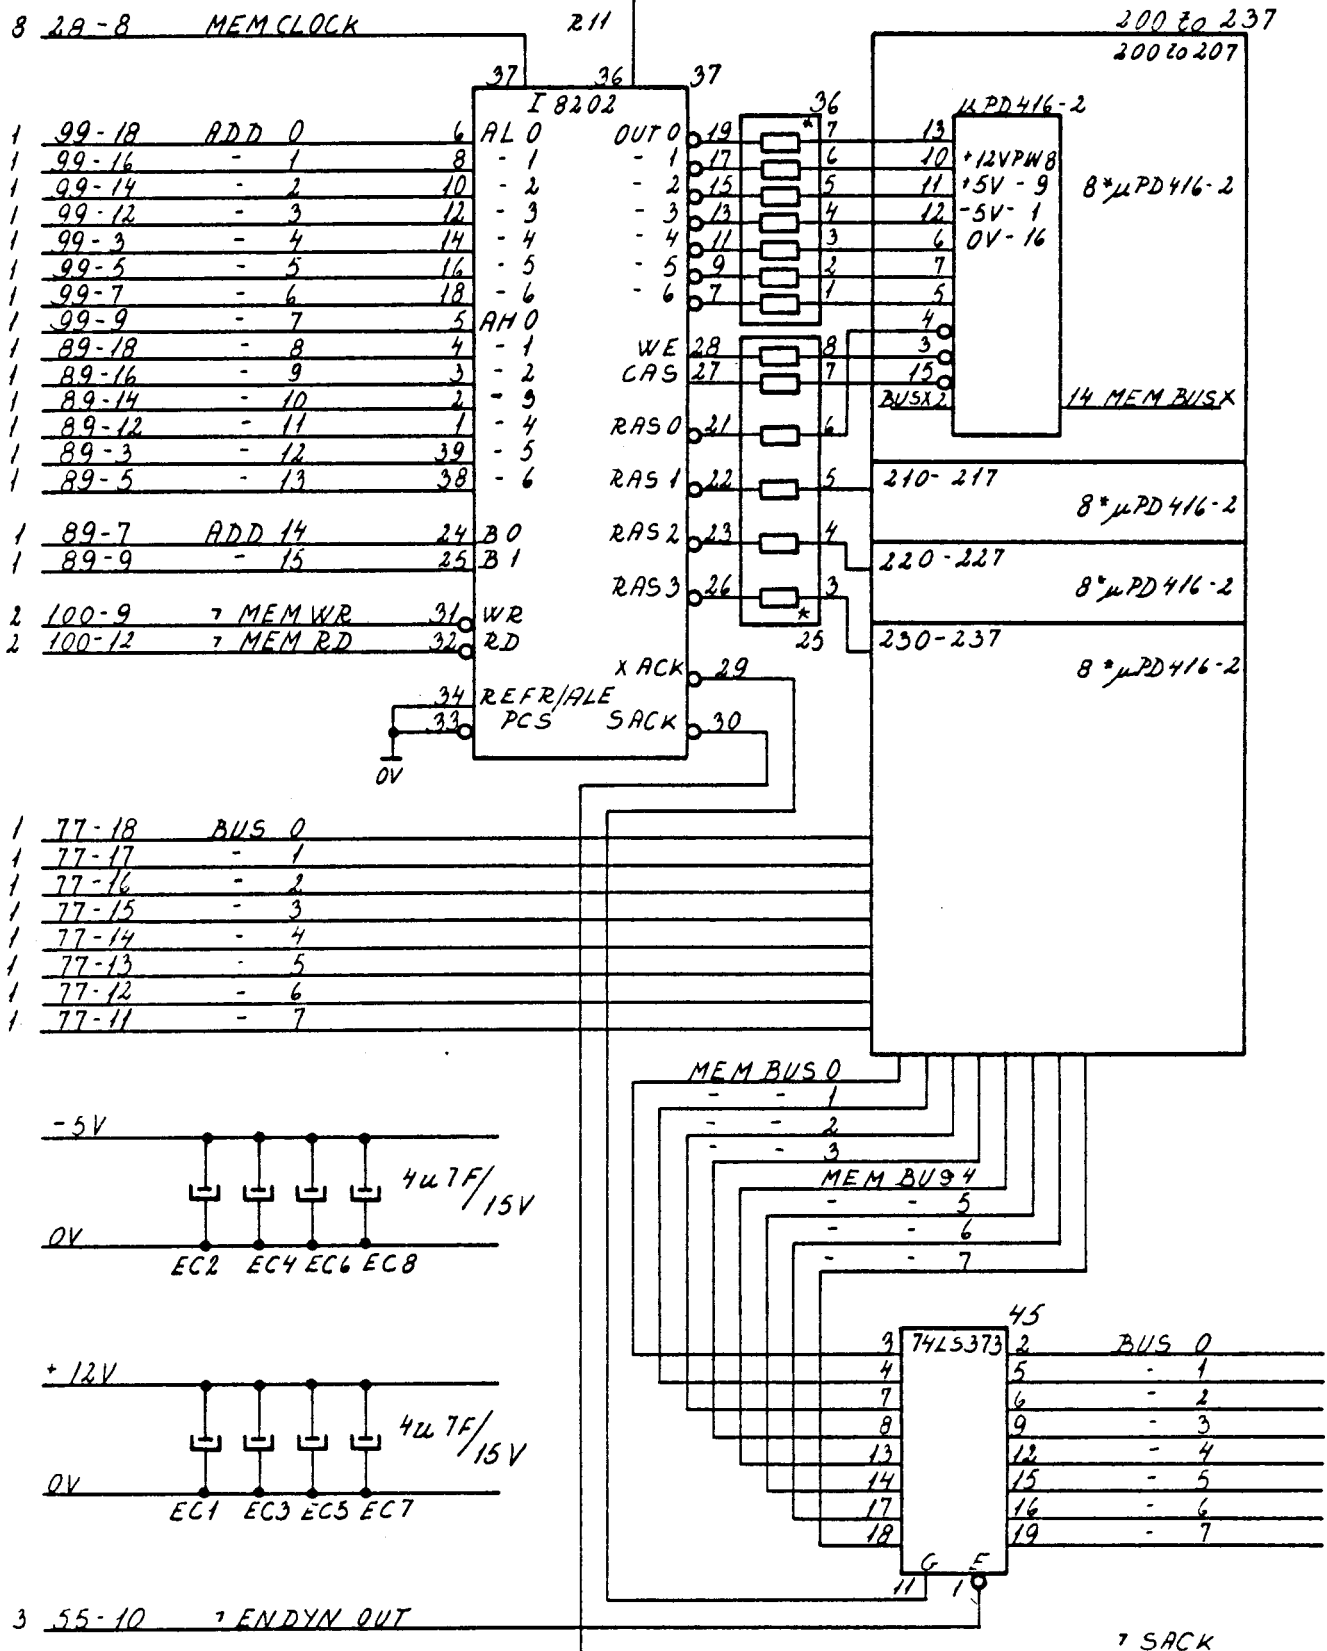 8 28-8 MEM CLOCK
R11
200 to 237
200 to 207
37 36 37
I 8202
36
µPD416-2
1 99-18 ADD 0 6 AL 0 OUT 0 19 * 7 13
1 99-16 - 1 8 - 1 - 1 17 6 10 +12VPW8
1 99-14 - 2 10 - 2 - 2 15 5 11 +5V - 9 8*µPD416-2
1 99-12 - 3 12 - 3 - 3 13 4 12 -5V - 1
1 99-3 - 4 14 - 4 - 4 11 3 6 0V - 16
1 99-5 - 5 16 - 5 - 5 9 2 7
1 99-7 - 6 18 - 6 - 6 7 1 5
1 99-9 - 7 5 AH 0 4
1 89-18 - 8 4 - 1 WE 28 8 3
1 89-16 - 9 3 - 2 CAS 27 7 15
1 89-14 - 10 2 - 3 BUSX 2 14 MEM BUSX
1 89-12 - 11 1 - 4 RAS 0 21 6
1 89-3 - 12 39 - 5
1 89-5 - 13 38 - 6 RAS 1 22 5 210-217
8*µPD416-2
1 89-7 ADD 14 24 B0 RAS 2 23 4
1 89-9 - 15 25 B1 220-227
RAS 3 26 3 8*µPD416-2
2 100-9 ¬ MEM WR 31 WR *
2 100-12 ¬ MEM RD 32 RD 25 230-237
XACK 29 8*µPD416-2
34 REFR/ALE
33 PCS SACK 30
0V
1 77-18 BUS 0
1 77-17 - 1
1 77-16 - 2
1 77-15 - 3
1 77-14 - 4
1 77-13 - 5
1 77-12 - 6
1 77-11 - 7
MEM BUS 0
- - 1
- - 2
- - 3
MEM BUS 4
- - 5
- - 6
- - 7
-5V
4u7F/15V
0V
EC2 EC4 EC6 EC8
+12V
4u7F/15V
0V
EC1 EC3 EC5 EC7
45
3 74LS373 2 BUS 0
4 5 - 1
7 6 - 2
8 9 - 3
13 12 - 4
14 15 - 5
17 16 - 6
18 19 - 7
G E
11 1
3 55-10 ¬ ENDYN OUT
¬ SACK